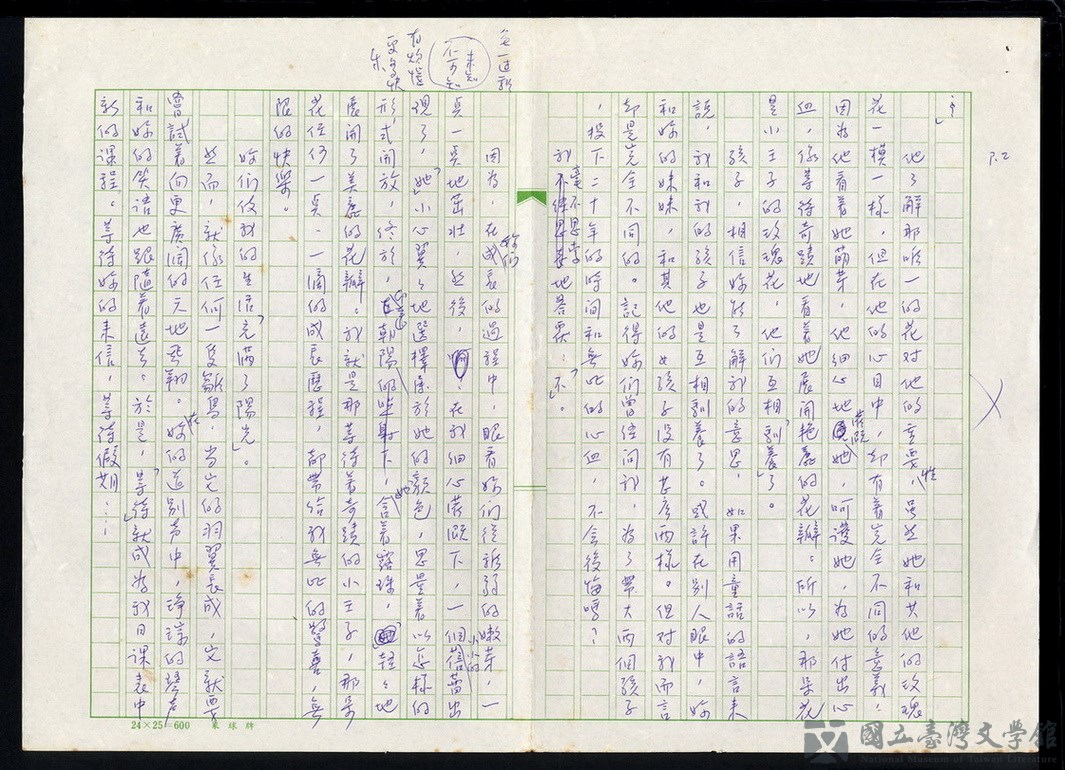 P.2
…」
他了解那唯一的花對他的重要性,雖然她和其他的玫瑰
花一模一樣,但在他的心目中,却有着完全不同的意義,
因為他看着她萌芽,他細心地照顧她,呵護她,為她付出心
血,像等待奇蹟地看着她展開艷麗的花瓣。所以,那朵花
是小王子的玫瑰花,他們互相「馴養」了。
孩子,相信妳能了解我的意思,如果用童話的語言來
說,我和我的孩子也是互相馴養了。或許在別人眼中,妳
和妳的妹妹,和其他的女孩子沒有甚麼兩樣。但對我而言
却是完全不同的。記得妳們曾經問我,為了帶大兩個孩子
,投下二十年的時間和無比的心血,不會後悔嗎?
我毫不思索地答覆:「不」。
因為,在妳們成長的過程中,眼看妳們從新弱的嫩芽,一
具一具地茁壯,然後,在我細心照顧下,一個小小的蓓蕾出
現了,「她」小心翼翼地選擇屬於她的顏色,思量着以怎樣的
形式開放,終於,在朝陽下,她含着露珠,輕輕地
展開了美麗的花瓣。我就是那等待着奇蹟的小王子,那朵
花任何一具一滴的成長歷程,都帶給我無比的驚喜,無
限的快樂。
妳們使我的生活「充滿了陽光」。
然而,就像任何一隻雛鳥,當它的羽翼長成,它就要
嘗試着向更廣闊的天地飛翔。在妳的道別聲中,琤琮的琴聲
和妳的笑語也跟隨着遠去。於是,「等待」就成為我日課表中
新的課程。等待妳的來信,等待假期……
未知
不可知
有煩惱
更多快
樂
24×25=600
國立臺灣文學館
National Museum of Taiwan Literature